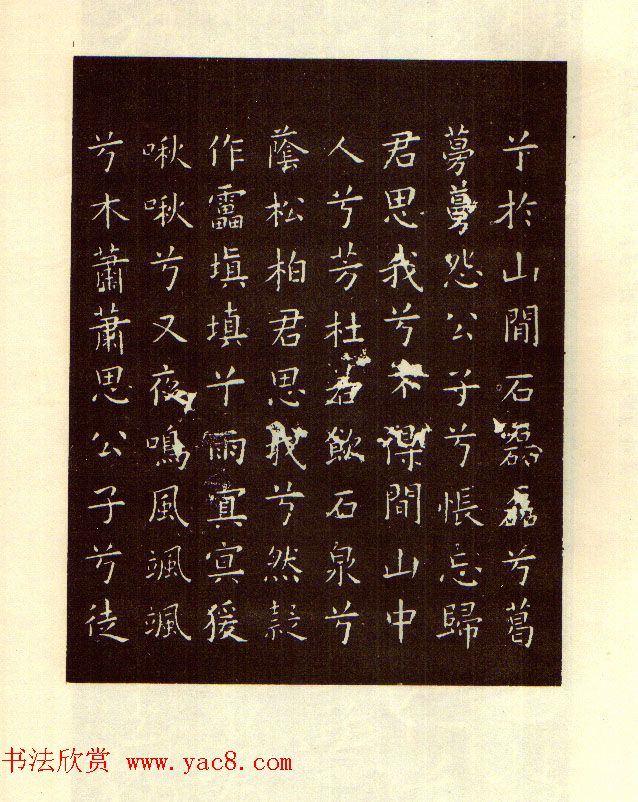 兮於山間石磊磊兮葛
蔓蔓怨公子兮悵忘歸
君思我兮不得間山中
人兮芳杜若飲石泉兮
蔭松柏君思我兮然疑
作靁填填兮雨冥冥猨
啾啾兮又夜鳴風颯颯
兮木蕭蕭思公子兮徒
书法欣赏 www.yac8.com